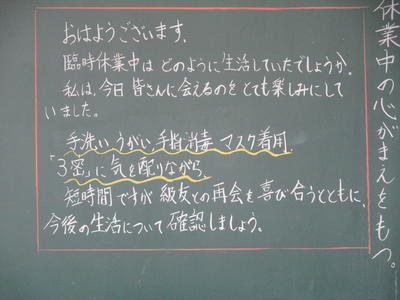 休業中の心がまえをもつ。
おはようございます。
臨時休業中は どのように生活していたでしょうか。
私は、今日 皆さんに会えるのを とても楽しみにして
いました。
手洗い、うがい、手指消毒 マスク着用、
「3密」に 気を配りながら、
短時間ですが 級友との再会を喜び合うとともに、
今後の生活について確認しましょう。